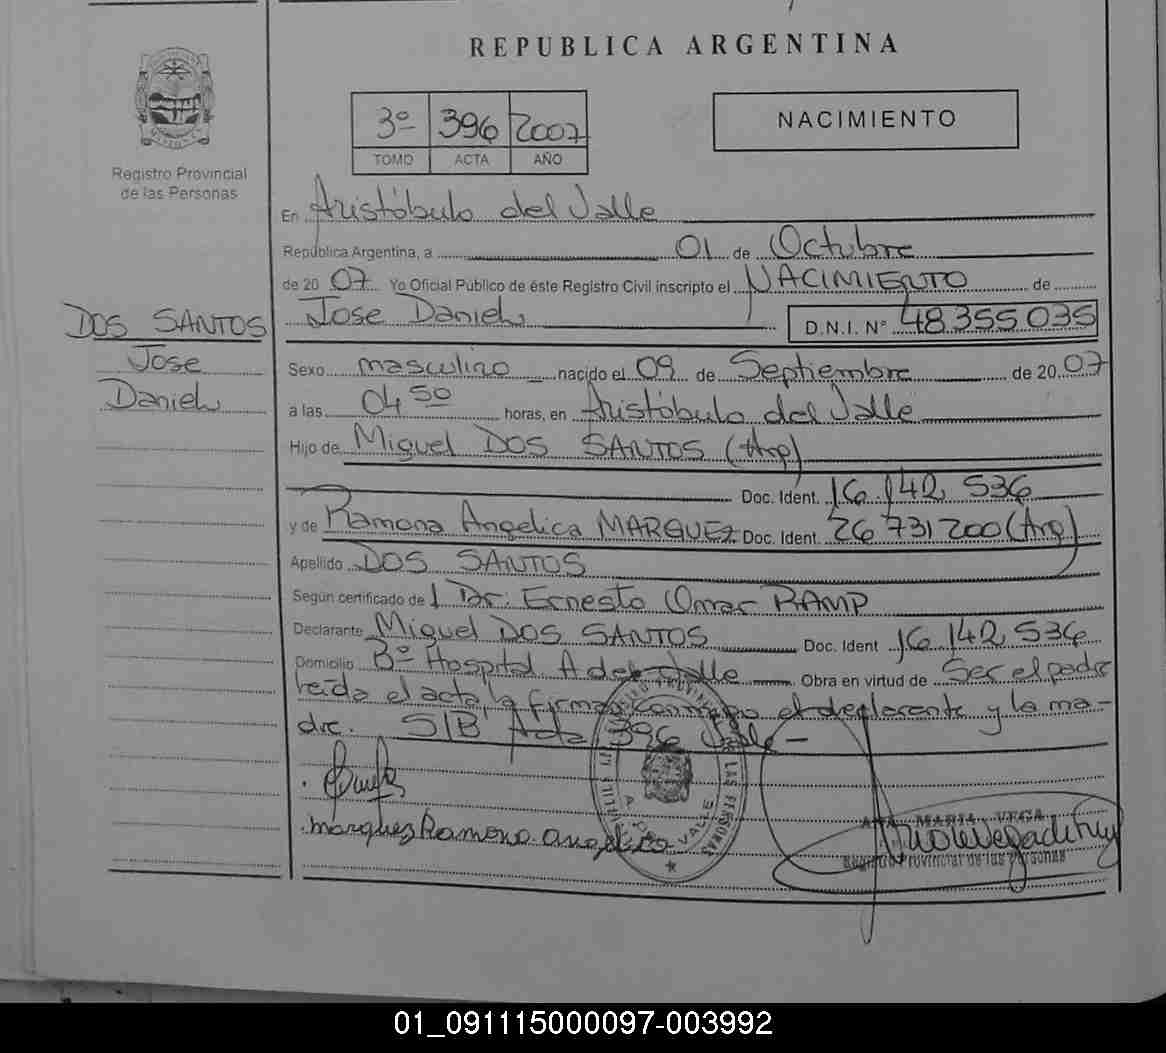 REPUBLICA ARGENTINA
3º 396 2007
TOMO ACTA AÑO
NACIMIENTO
Registro Provincial
de las Personas
DOS SANTOS
Jose
Daniel
En Aristóbulo del Valle
República Argentina, a 01 de Octubre
de 20 07 Yo Oficial Público de éste Registro Civil inscripto el NACIMIENTO de
Jose Daniel D.N.I. Nº 48355035
Sexo masculino nacido el 09 de Septiembre de 20 07
a las 04 50 horas, en Aristóbulo del Valle
Hijo de Miguel DOS SANTOS (Arg)
Doc. Ident. 16.142.536
y de Ramona Angelica MARQUEZ Doc. Ident. 26.731.200 (Arg)
Apellido DOS SANTOS
Según certificado de Dr. Ernesto Omar RAMP
Declarante Miguel DOS SANTOS Doc. Ident 16.142.536
Domicilio Bº Hospital A del Valle Obra en virtud de Ser el padre
leída el acta, la firman conmigo el declarante y la ma-
dre. S/B Acta 396 Valle-
Marquez Ramona Angelica
A. DEL VALLE
ANA MARIA VEGA
Registro Provincial de las Personas
01_091115000097-003992